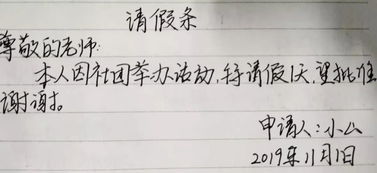 请假条
尊敬的老师:
本人因社团举办活动,特请假1天,望批准
谢谢。
申请人:小山
2019年11月1日